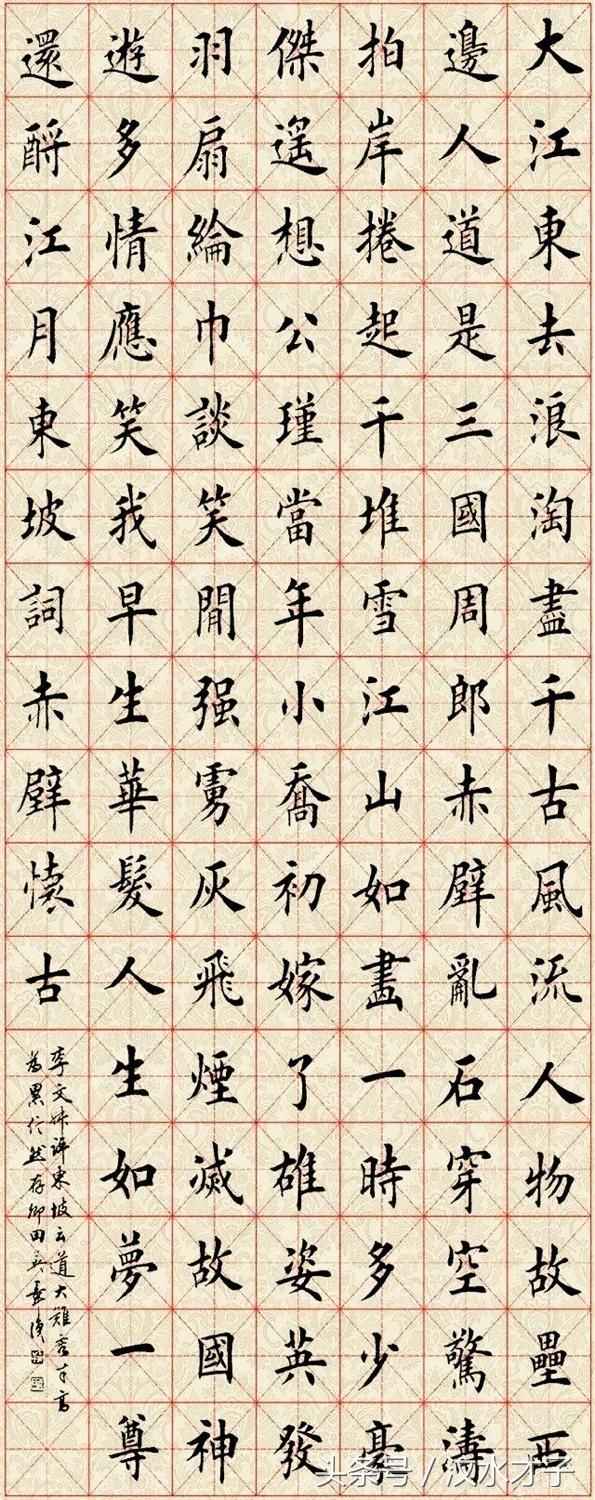 大江東去浪淘盡千古風流人物故壘西
邊人道是三國周郎赤壁亂石穿空驚濤
拍岸捲起千堆雪江山如畫一時多少豪
傑遙想公瑾當年小喬初嫁了雄姿英發
羽扇綸巾談笑閒强虜灰飛煙滅故國神
遊多情應笑我早生華髮人生如夢一尊
還酹江月東坡詞赤壁懷古
李文評東坡云道大難容才高
為累信然存卿田英章
头条号 / 汶水才子